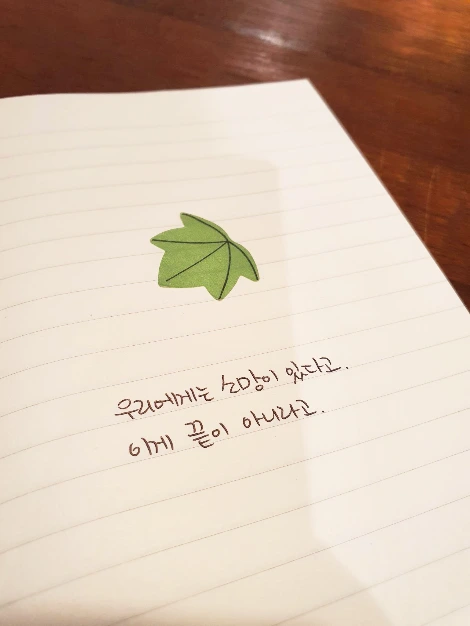 우리에게는 소망이 있다고.
이게 끝이 아니라고.